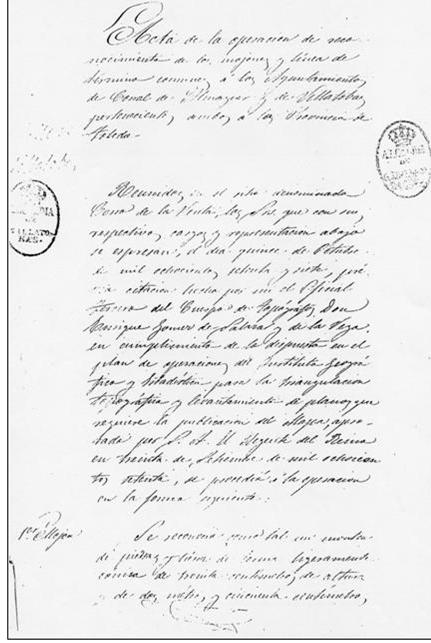 Acta de la operacion de reco-
nocimiento de los mojones y linea de
término comunes á los Ayuntamientos
de Corral de Almaguer y de Villatobas
pertenecientes ambos á la Provincia de
Toledo.
ALCALDIA
DE
VILLATO
BAS.
Reunidos en el sitio denominado
de la Venta, los Sres. que con sus
respectivos cargos y representacion abajo
se espresan, el dia quince de Octubre
de mil ochocientos setenta y siete, pré-
via citacion hecha por mi el Oficial
tercero del Cuerpo de Topógrafos Don
Enrique Gomez de y de la Vega,
en cumplimiento de lo dispuesto en el
plan de operaciones del Instituto Geográ-
fico y Estadístico para la triangulacion
topográfica y levantamiento de planos que
requiere la publicacion del Mapa, apro-
bado por S. A. el Regente del Reino
en treinta de Setiembre de mil ochocien
tos setenta, se procedió á la operacion
en la forma siguiente:
1er Mojon
Se reconoció como tal un monton
de piedras y tierra de forma ligeramente
conica de treinta centimetros de altura
y de dos metros y cincuenta centimetros,